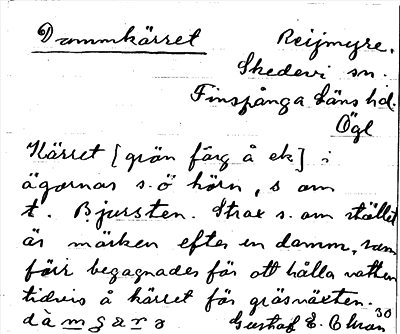 Dammkärret
Reijmyre.
Skedevi sn.
Finspånga läns hd.
Ögl
Kärret [grön färg å ek] i
ägornas s.ö hörn, s om
t. Bjursten. Strax s. om stället
är märken efter en damm, som
förr begagnades för att hålla vatten
tidvis å kärret för gräsväxten.
Gustaf E. 30